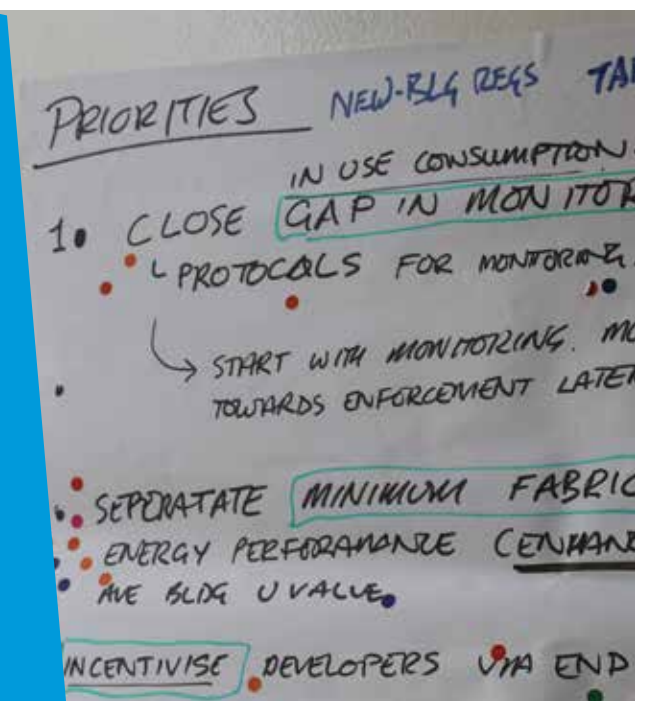 PRIORITIES NEW-BLG REGS TAR
IN USE CONSUMPTION
1. CLOSE GAP IN MONITOR
PROTOCOLS FOR MONITORING
START WITH MONITORING. MO
TOWARDS ENFORCEMENT LATER
SEPERATATE MINIMUM FABRIC
ENERGY PERFORAMANZE (ENHANC
AVE BLDG U VALUE
INCENTIVISE DEVELOPERS VIA END